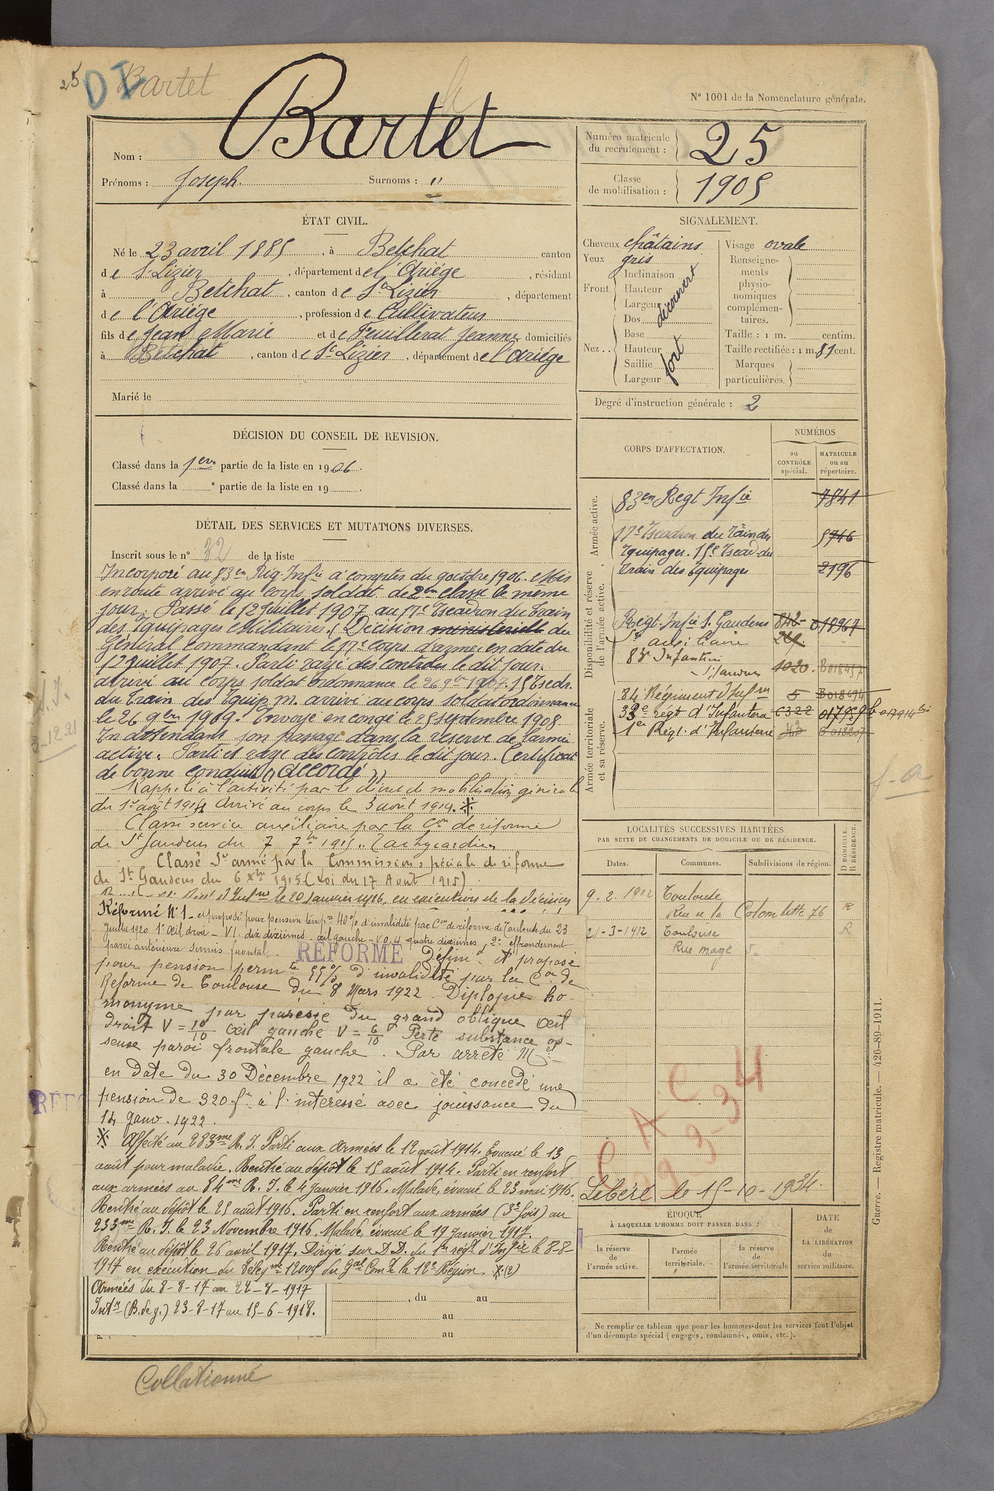 25 DI Bartet
N° 1001 de la Nomenclature générale.
Nom : Bartet
Prénoms : Joseph. Surnoms : "
Numéro matricule du recrutement : 25
Classe de mobilisation : 1905
ÉTAT CIVIL.
Né le 23 avril 1885, à Betchat canton
de St Lizier, département de l'Ariège, résidant
à Betchat, canton de St Lizier, département
de l'Ariège, profession de Cultivateur
fils de Jean Marie et de Feuillerat Jeanne domiciliés
à Betchat, canton de St Lizier, département de l'Ariège
Marié le
SIGNALEMENT.
Cheveux châtains Visage ovale
Yeux gris
Front. Inclinaison Hauteur Largeur découvert
Nez . . Dos Base Hauteur Saillie Largeur fort
Renseignements physionomiques complémentaires.
Taille : 1 m. centim.
Taille rectifiée : 1 m. 81 cent.
Marques particulières.
Degré d'instruction générale : 2
DÉCISION DU CONSEIL DE REVISION.
Classé dans la 1ere partie de la liste en 1906.
Classé dans la e partie de la liste en 19 .
DÉTAIL DES SERVICES ET MUTATIONS DIVERSES.
Inscrit sous le n° 32 de la liste
Incorporé au 83em Rég. Infie à compter du 9 octbre 1906. Mis
en route arrivé au corps, soldat de 2em classe le même
jour. Passé le 12 juillet 1907 au 17e Escadron du Train
des Equipages Militaires (Décision ministérielle du
Général Commandant le 17e Corps d'armée en date du
12 juillet 1907. Parti rayé des contrôles le dit jour.
Arrivé au corps soldat ordonnance le 26 9bre 1907. 15 Escdr.
du Train des Equip. M. arrivé au corps soldat ordonnance
le 26 9bre 1909. Envoyé en congé le 25 septembre 1908
En attendant son passage dans la réserve de l'armée
active. Parti et rayé des contrôles le dit jour. Certificat
de bonne conduite "Accordé"
Rappelé à l'activité par le décret de mobilisation générale
du 1er août 1914 Arrivé au corps le 3 août 1914. ※
Classé service auxiliaire par la Con de réforme
de St Gaudens du 7 7bre 1915 "Tachycardie"
Classé St armé par la Commission spéciale de réforme
de St Gaudens du 6 Xbre 1915 (Loi du 17 Aout 1915)
le 20 Janvier 1916, en exécution de la décision
Réformé N° 1 - et proposé pour pension temp. 40% d'invalidité par Con de réforme de Toulouse du 23
Juillet 1920 1° Œil droit - V1, dix dixièmes - œil gauche - V 0,4 quatre dixièmes, 2° effrondement
paroi antérieure sinus frontal.
RÉFORMÉ
Définif et proposé
pour pension permte 55% d'invalidité par la Con de
Réforme de Toulouse du 8 Mars 1922 Diplopie ho-
monyme par parésie du grand oblique Œil
droit V = 10/10 Œil gauche V = 6/10 Perte substance os-
seuse paroi frontale gauche. Par arrêté Mel
en date du 30 Décembre 1922 il a été concédé une
pension de 320 f. à l'interessé avec jouissance du
14 janv. 1922.
※ Affecté au 283me R. I. Parti aux Armées le 12 août 1914. Evacué le 13
août pour maladie. Rentré au dépôt le 15 août 1914. Parti en renfort
aux armées au 84me R. I. le 4 janvier 1916. Malade, évacué le 23 mai 1916.
Rentré au dépôt le 25 août 1916. Parti en renfort aux armées (3e fois) au
233me R. I. le 23 Novembre 1916. Malade, évacué le 19 janvier 1917.
Rentré au dépôt le 26 avril 1917. Dirigé sur D.D. du 1er régt d'Infie le 8-8-
1917 en exécution du Télégme 12005 du Gal Comt la 12e Région. ※(2)
Armées du 8-8-17 au 22-8-1917
Intr (B.de g.) 23-8-17 au 15-6-1918.
, du au
au
au
Collationné
CORPS D'AFFECTATION.
NUMÉROS
au CONTRÔLE spécial.
MATRICULE ou au répertoire.
Armée active.
83em Regt Infie 7841
17e Escadron du Train des 5746
Equipages. 15e Escad du
Train des Equipages 2196
Disponibilité et réserve de l'armée active.
Regt Infie St Gaudens
83 Infanterie
St Gaudens 1020
Armée territoriale et sa réserve.
84 Régiment d'Infrie 5
33e regt d'Infanterie
1e Régt d'Infanterie
LOCALITÉS SUCCESSIVES HABITÉES
PAR SUITE DE CHANGEMENTS DE DOMICILE OU DE RÉSIDENCE.
Dates. Communes. Subdivisions de région. D DOMICILE. R RÉSIDENCE.
9. 2. 1912 Toulouse
Rue de la Colombette 76 R
21-3-1912 Toulouse R
Rue mage 5
C A C
29 3-34
Libéré le 15-10-1934.
ÉPOQUE
À LAQUELLE L'HOMME DOIT PASSER DANS :
la réserve de l'armée active.
l'armée territoriale.
la réserve de l'armée territoriale
DATE de LA LIBÉRATION du service militaire.
Ne remplir ce tableau que pour les hommes dont les services font l'objet
d'un décompte spécial (engagés, condamnés, omis, etc.).
Guerre. — Registre matricule. — 426-89-1911.